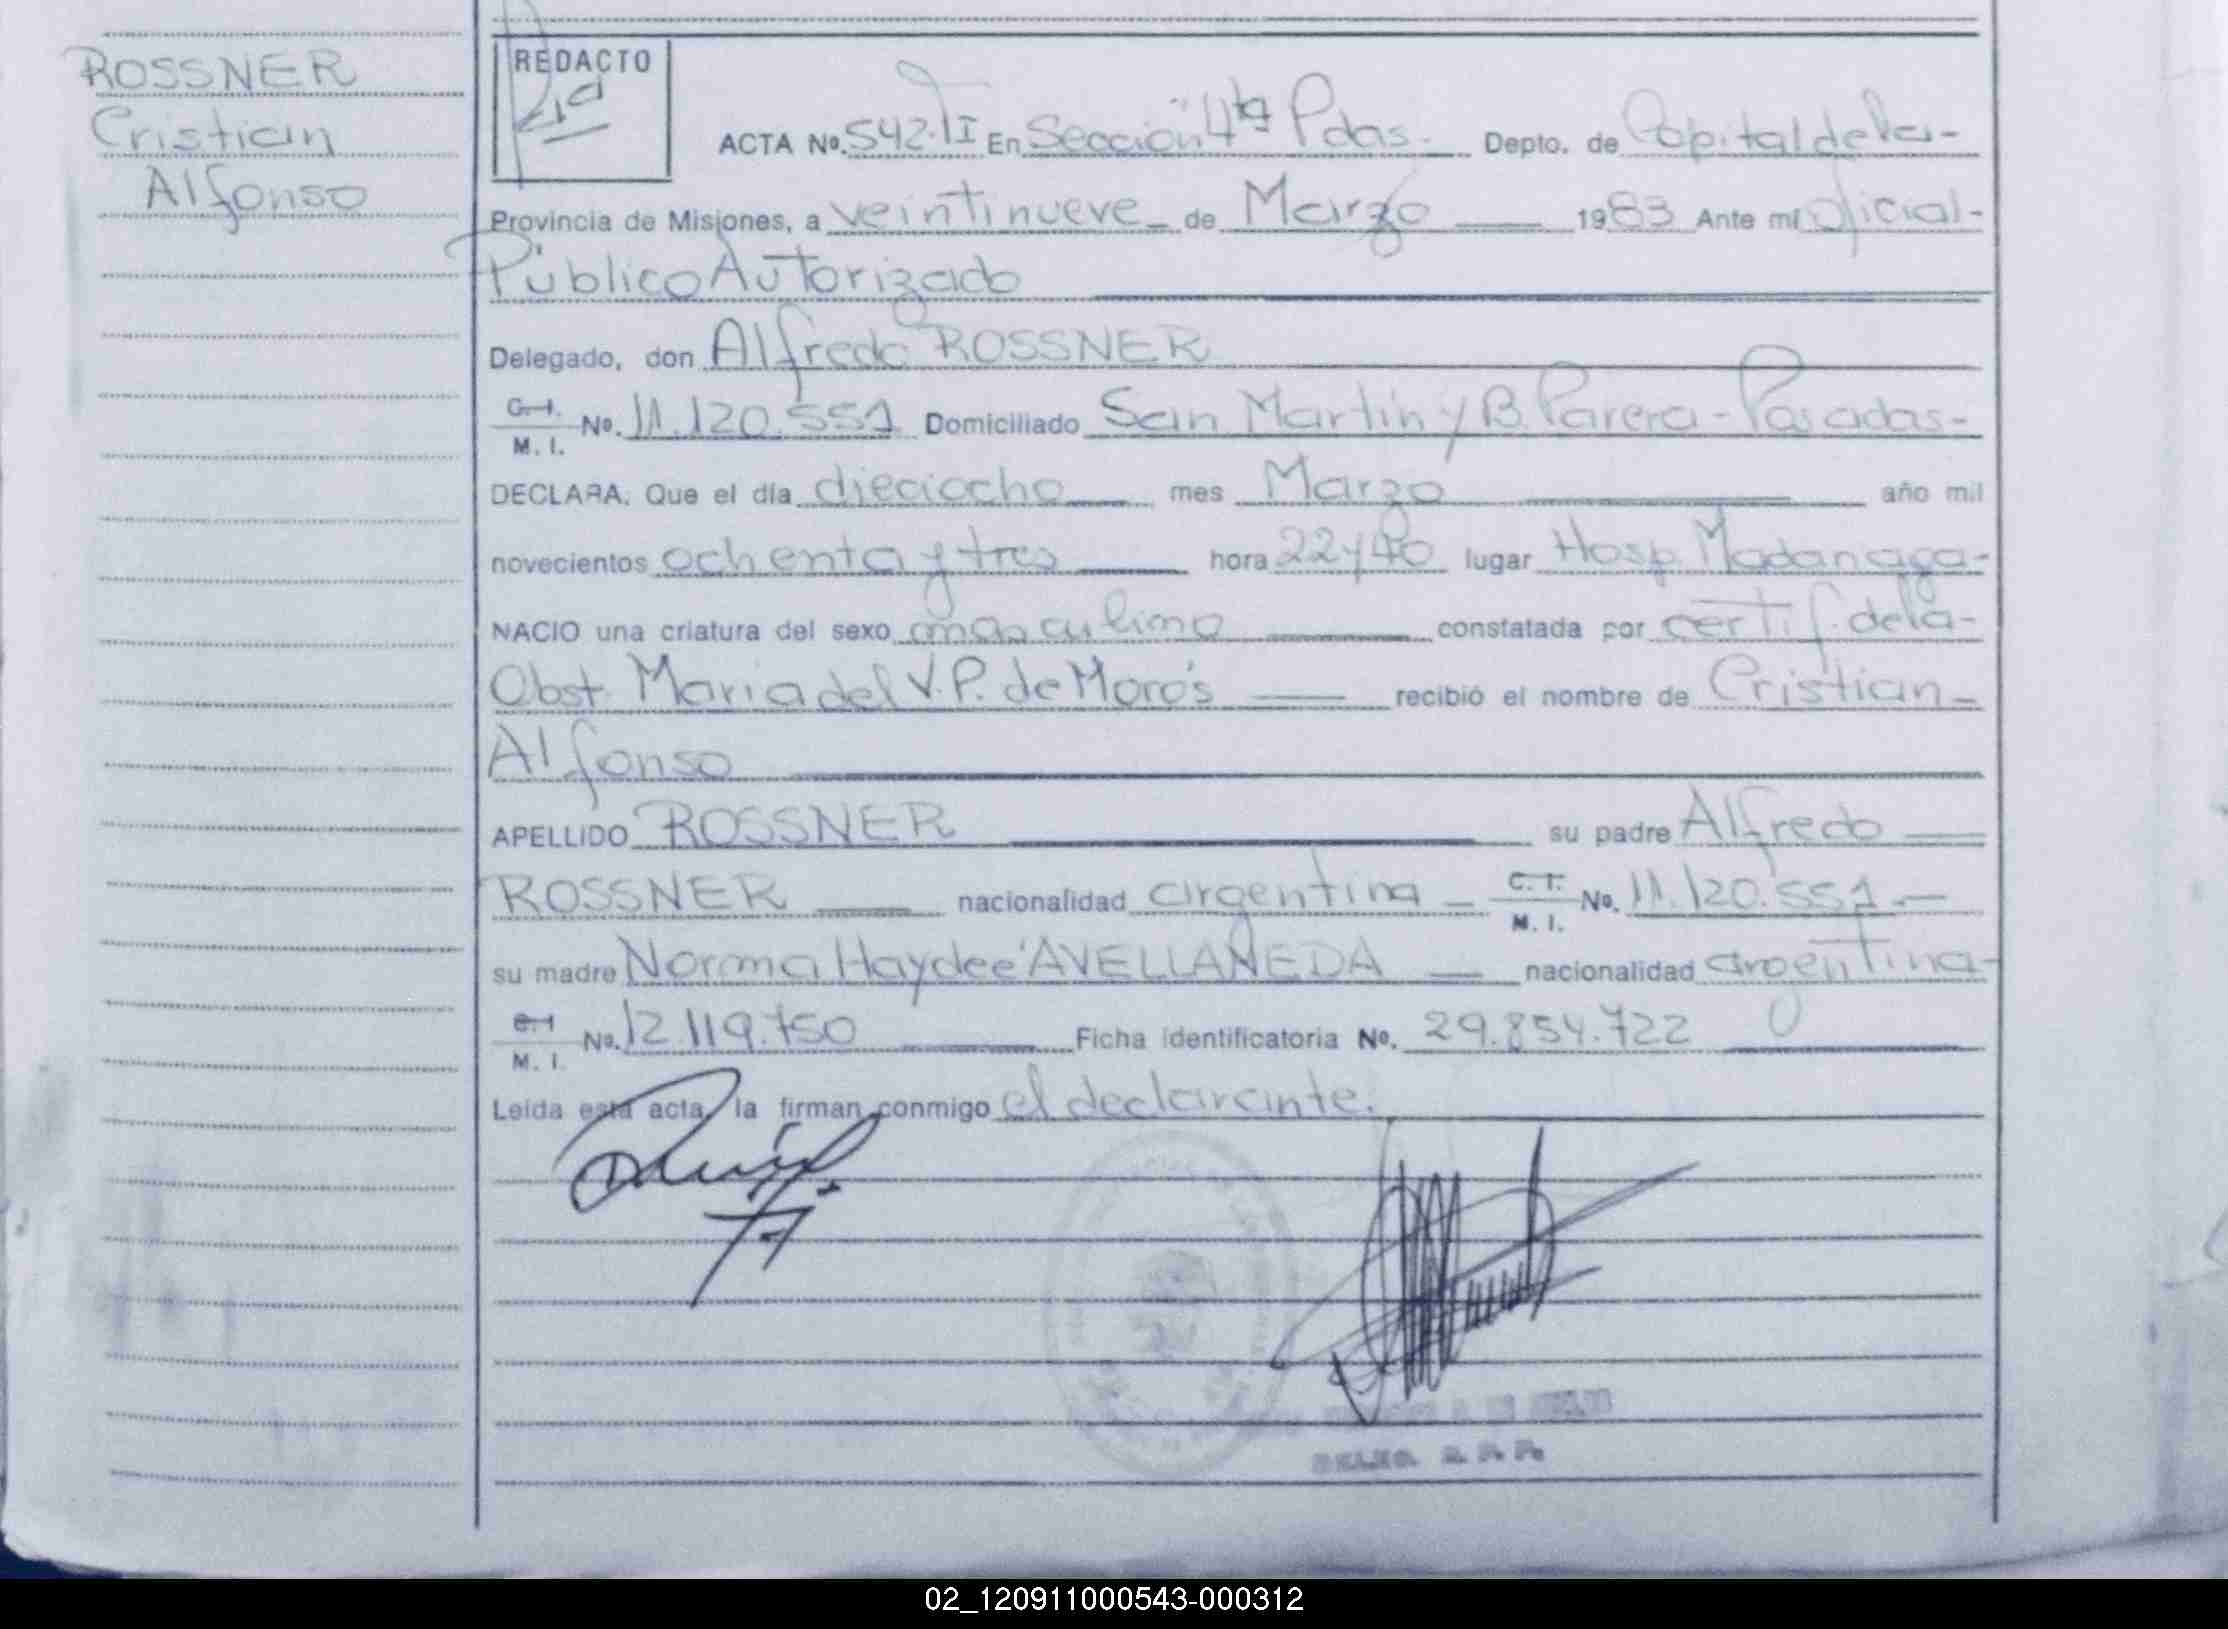 ROSSNER
Cristian
Alfonso
REDACTO
ACTA No. 542.TI En Sección 4ta Pdas. Depto. de Capital de la-
Provincia de Misiones, a veintinueve de Marzo 1983 Ante mí oficial-
Público Autorizado
Delegado, don Alfredo ROSSNER
C.I.
M.I. No. 11.120.551 Domiciliado San Martin y B. Parera - Posadas-
DECLARA: Que el día dieciocho mes Marzo año mil
novecientos ochenta y tres hora 22 y 40 lugar Hosp. Madariaga-
NACIO una criatura del sexo masculino constatada por certif. de la-
Obst. Maria del V.P. de Morós recibió el nombre de Cristian-
Alfonso
APELLIDO ROSSNER su padre Alfredo
ROSSNER nacionalidad argentina - C.I.
M.I. No. 11.120.551.-
su madre Norma Haydeé AVELLANEDA nacionalidad argentina-
C.I
M.I. No. 12.119.750 Ficha identificatoria No. 29.854.722
Leída esta acta, la firman conmigo el declarante.
02_120911000543-000312